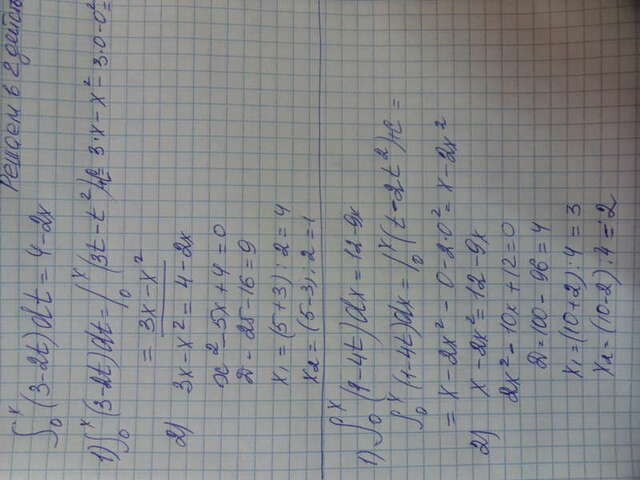 Решаем в 2 действ
∫₀ˣ (3-2t)dt = 4-2x
1) ∫₀ˣ (3-2t)dt = |₀ˣ (3t-t²)+C = 3·x-x²-3·0-0² =
= 3x-x²
2) 3x-x² = 4-2x
x²-5x+4=0
D-25-16=9
x₁ = (5+3):2=4
x₂ = (5-3):2=1
1) ∫₀ˣ (1-4t)dx = 12-9x
∫₀ˣ (1-4t)dx = |₀ˣ (t-2t²)+C =
= x-2x²-0-2·0² = x-2x²
2) x-2x² = 12-9x
2x²-10x+12=0
D=100-96=4
x₁=(10+2):4=3
x₂=(10-2):4=2